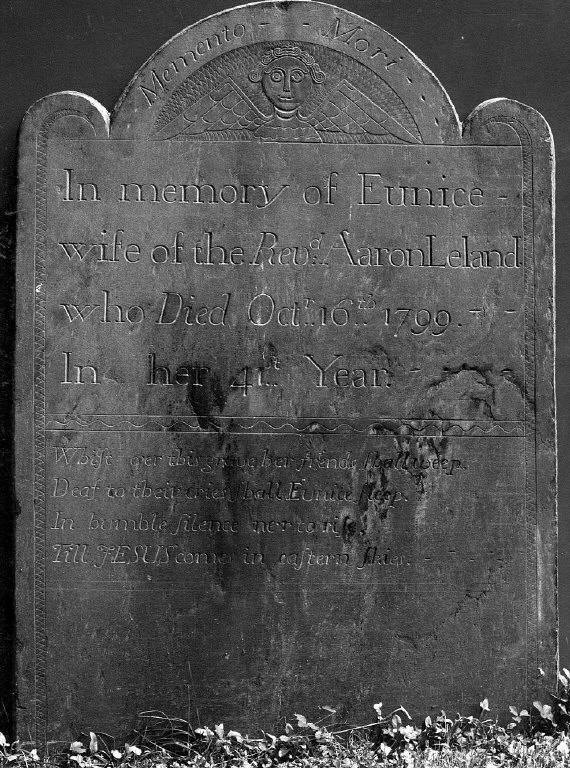 Memento - - Mori - - -
In memory of Eunice -
wife of the Revd. Aaron Leland
who Died Octr. 16th. 1799. - -
In her 41st. Year. - - - -
Whilſt o'er this grave her friends ſhall weep.
Deaf to their cries ſhall Eunice ſleep.
In humble ſilence ne'r to riſe,
Till JESUS comes in eaſtern ſkies. - - - -